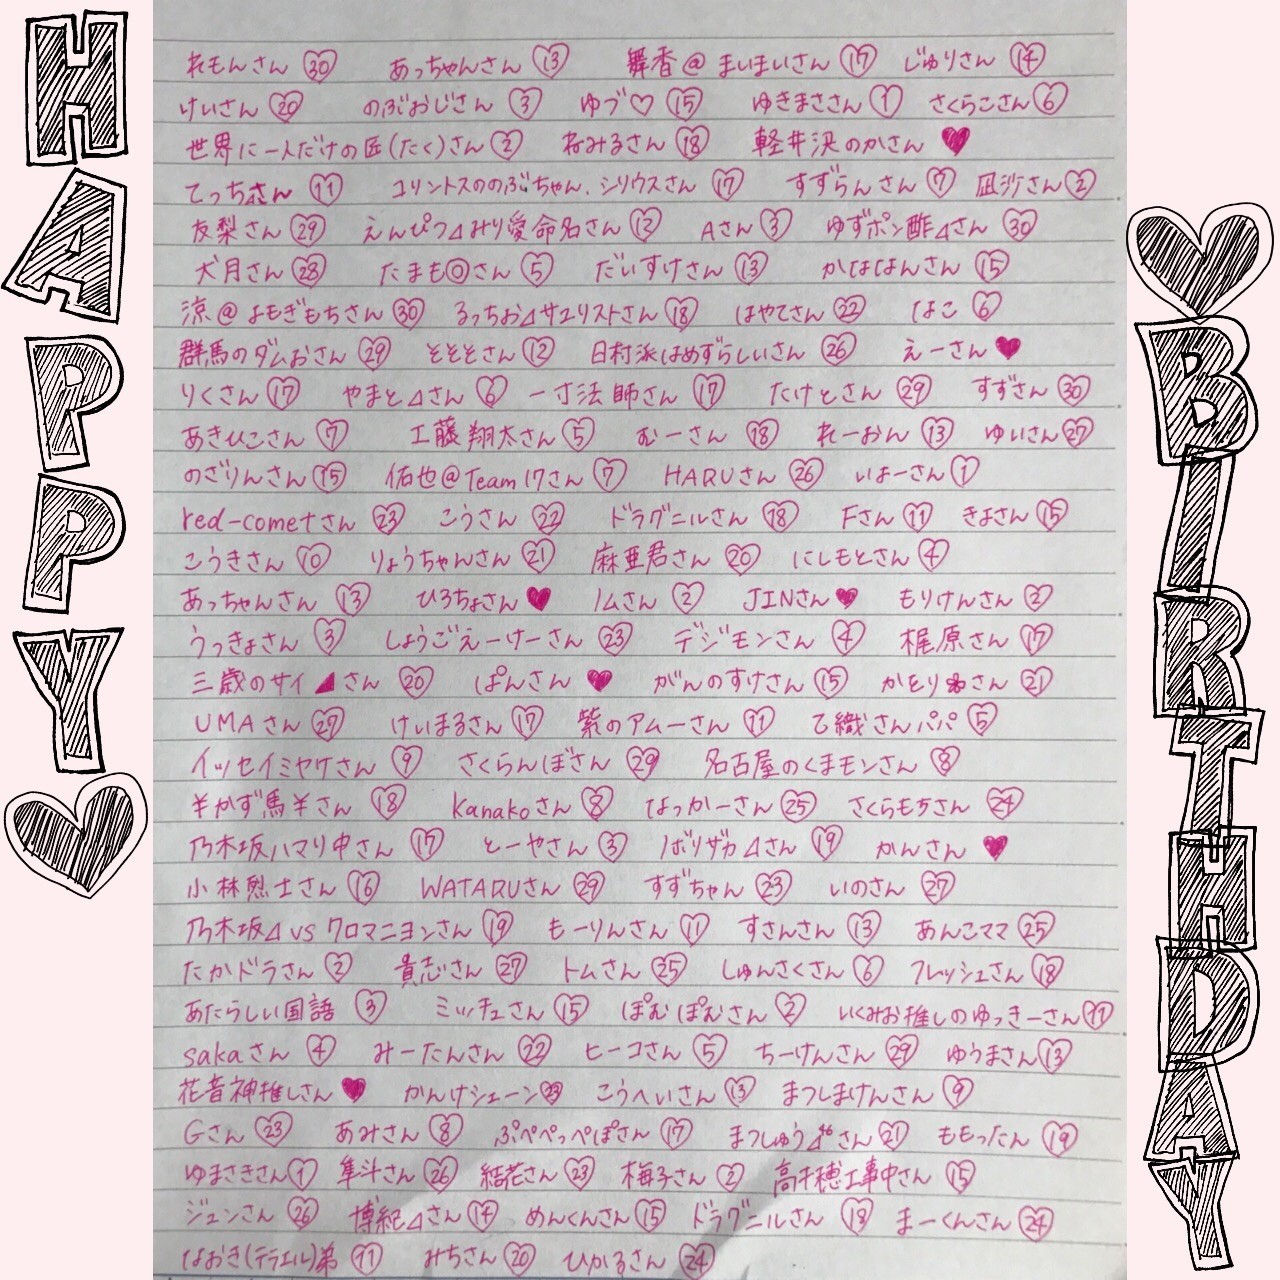 HAPPY
れもんさん 30 あっちゃんさん 13 舞香@まいまいさん 17 じゅりさん 14
けいさん 20 のぶおじさん 3 ゆづ♡ 15 ゆきまささん 1 さくらこさん 6
世界に一人だけの匠(たく)さん 2 ねみるさん 18 軽井沢のかさん ♥
てっちさん 11 コリントスののぶちゃん.シリウスさん 17 すずらんさん 7 凪沙さん 2
友梨さん 29 えんぴつ⊿みり愛命名さん 12 Aさん 3 ゆずポン酢⊿さん 30
犬月さん 28 たまも◎さん 5 だいすけさん 13 かなはんさん 15
涼@よもぎもちさん 30 るっちお⊿サユリストさん 18 はやてさん 22 なこ 6
群馬のダムおさん 29 とととさん 12 日村派はめずらしいさん 26 えーさん ♥
りくさん 17 やまと⊿さん 6 一寸法師さん 17 たけとさん 29 すずさん 30
あきひこさん 7 工藤翔太さん 5 むーさん 18 れーおん 13 ゆいさん 27
のざりんさん 15 佑也@Team17さん 7 HARUさん 26 いはーさん 1
red-cometさん 23 こうさん 22 ドラグニルさん 18 Fさん 11 きよさん 15
こうきさん 10 りょうちゃんさん 21 麻亜君さん 20 にしもとさん 4
あっちゃんさん 13 ひろちょさん ♥ ノムさん 2 JINさん ♥ もりけんさん 2
うっきょさん 3 しょうごえーけーさん 23 デジモンさん 4 梶原さん 17
三歳のサイ◢さん 20 ぱんさん ♥ がんのすけさん 15 かとり❀さん 21
UMAさん 27 けいまるさん 17 紫のアムーさん 11 乙織さんパパ 5
イッセイミヤケさん 9 さくらんぼさん 29 名古屋のくまモンさん 8
¥かず馬¥さん 18 Kanakoさん 8 なっかーさん 25 さくらもちさん 24
乃木坂ハマり中さん 17 とーやさん 3 ノボリザカ⊿さん 19 かんさん ♥
小林烈士さん 16 WATARUさん 29 すずちゃん 23 いのさん 27
乃木坂⊿vsクロマニヨンさん 19 もーりんさん 11 すさんさん 13 あんこママ 25
たかドラさん 2 貴志さん 27 トムさん 25 しゅんさくさん 6 フレッシュさん 18
あたらしい国語 3 ミッチュさん 15 ぽむぽむさん 2 いくみお推しのゆっきーさん 11
sakaさん 4 みーたんさん 22 ヒーコさん 5 ちーけんさん 29 ゆうまさん 13
花音神推しさん ♥ かんけシェーン 23 こうへいさん 13 まつしまけんさん 9
Gさん 23 あみさん 8 ぷぺぺっぺぽさん 17 まつしゅう⊿46さん 21 ももったん 19
ゆまさきさん 1 隼斗さん 26 結花さん 23 梅子さん 2 高千穂工事中さん 15
ジュンさん 26 博紀⊿さん 14 めんくんさん 15 ドラグニルさん 18 まーくんさん 24
なおき(テラエル)弟 11 みちさん 20 ひかるさん 24
BIRTHDAY